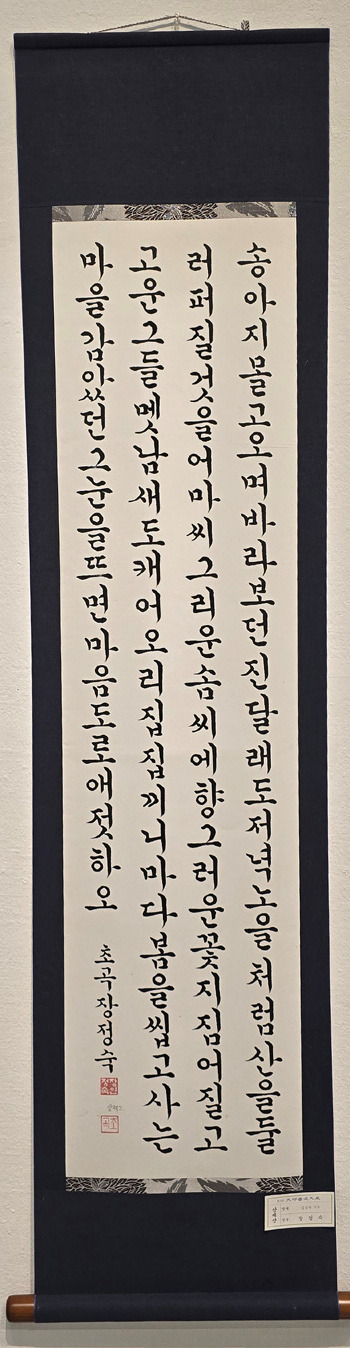 송아지몰고오며바라보던진달래도저녁노을처럼산을둘
러퍼질것을어마씨그리운솜씨에향그러운꽃지짐어질고
고운그들멧남새도캐어오리집집끼니마다봄을씹고사는
마을감았던그눈을뜨면마음도로애젓하오
초곡장정숙